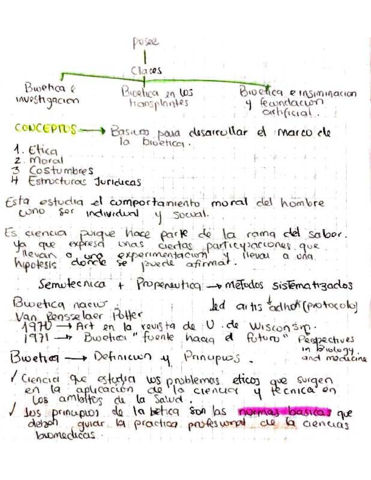 posee
Clases
Bioetica e investigacion
Bioetica en los transplantes
Bioetica e insiminacion y fecundacion artificial.
CONCEPTOS → Basicos para desarrollar el marco de
la bioetica.
1. Etica
2. Moral
3 Costumbres
4 Estructuras Juridicas
Esta estudia el comportamiento moral del hombre
como ser individual y social.
Es ciencia porque hace parte de la rama del sabor.
ya que expresa unas ciertas participaciones que
llevan a una experimentacion y llevai a una
hipotesis donde se puede afirmar.
Semiotecnica + Propeneutica → métodos sistematizados
Bioetica nacio
led artis adhok (protocolo)
Van Rensselaer Potter
1970 → Art en la revista de U. de Wisconsin.
1971 → Bioetica "fuente hacia el futuro" Perspectives
in biology
and medicine
Bioetica → Definicion y Principios.
✓ Ciencia que estudia los problemas eticos que surgen
en la aplicacion de la ciencia y tecnica en
los ambitos de la salud.
✓ Los principios de la bética son las normas basicas que
deben guiar la practica profesional de la ciencias
biomedicas.